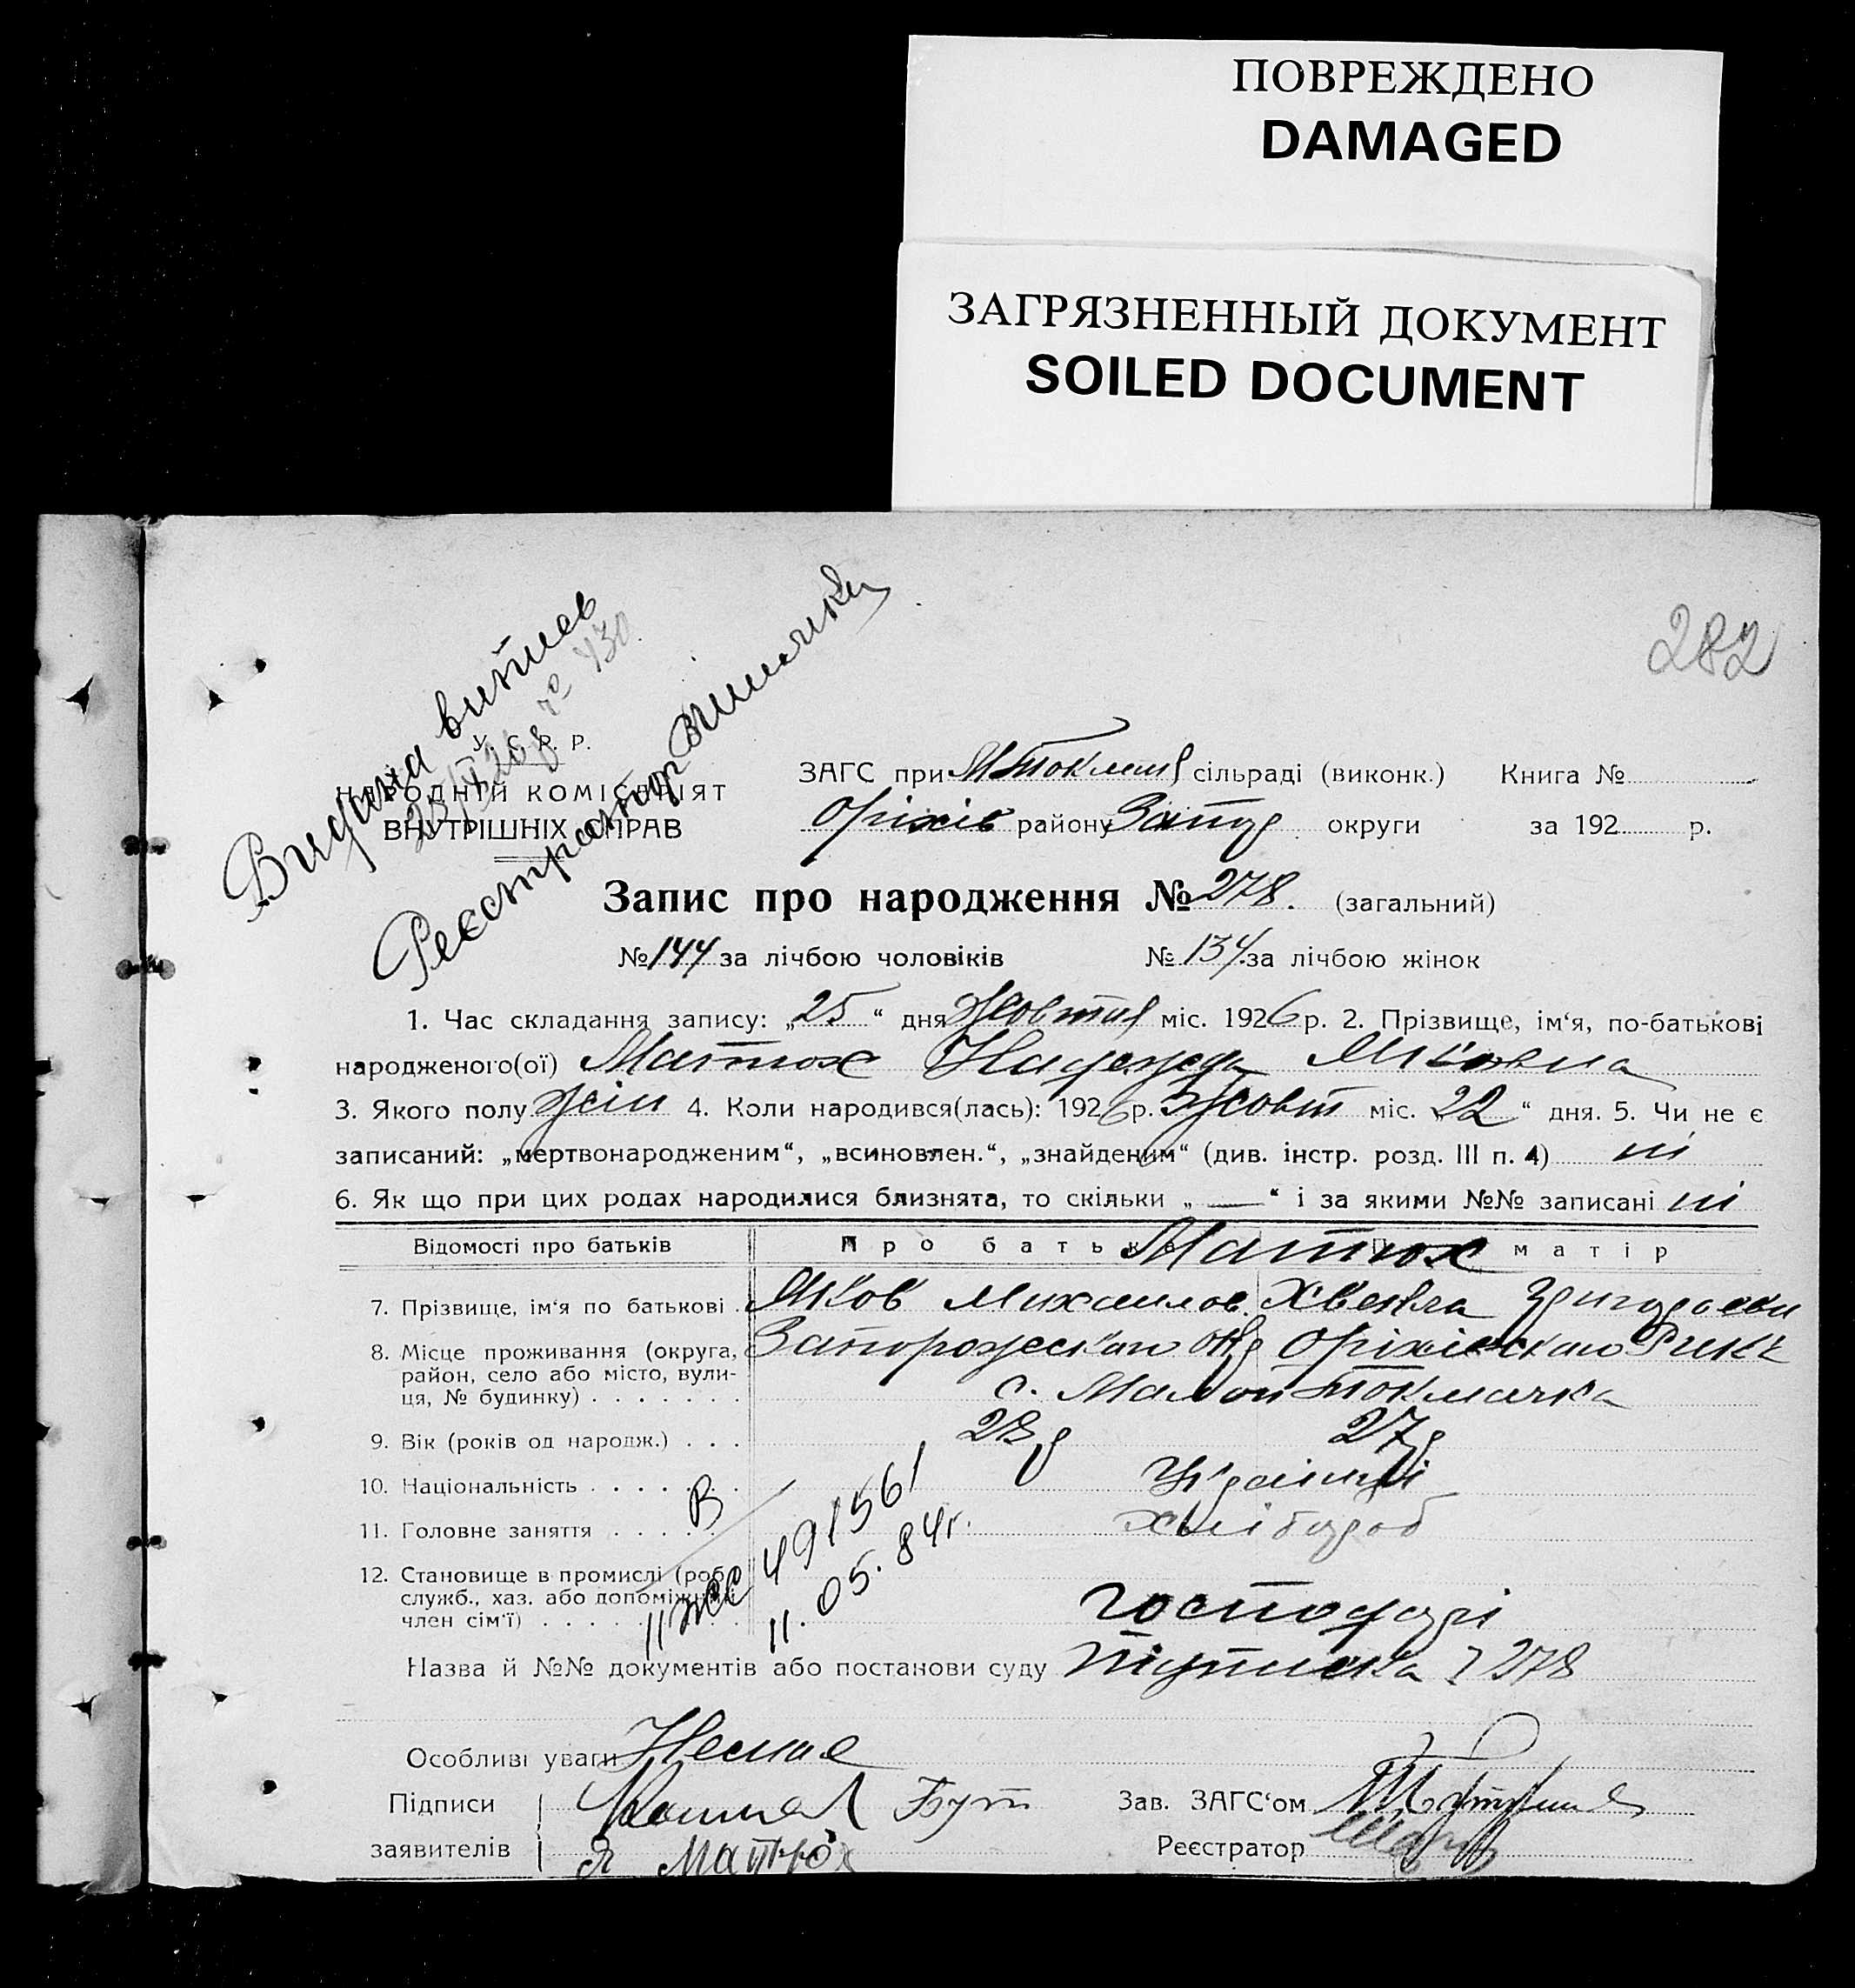 ПОВРЕЖДЕНО
DAMAGED
ЗАГРЯЗНЕННЫЙ ДОКУМЕНТ
SOILED DOCUMENT
282
Видана витяг
Реєстратор
У. С. Р. Р.
НАРОДНІЙ КОМІСАРІЯТ
ВНУТРІШНІХ СПРАВ
ЗАГС при М Токмац сільраді (виконк.) Книга №
Оріхів району Запор округи за 192 р.
Запис про народження № 278. (загальний)
№ 144 за лічбою чоловіків № 134. за лічбою жінок
1. Час складання запису: „25“ дня Жовтня міс. 1926 р. 2. Прізвище, ім‘я, по-батькові
народженого(ої) Матюх Надежда Яковна
3. Якого полу жін 4. Коли народився(лась): 1926 р. Жовт міс. „22“ дня. 5. Чи не є
записаний: „мертвонародженим“, „всиновлен.“, „знайденим“ (див. інстр. розд. III п. 4) ні
6. Як що при цих родах народилися близнята, то скільки „—“ і за якими №№ записані ні
Відомості про батьків Про батька Про матір
Матюх
7. Прізвище, ім‘я по батькові Яков Михаилов. Хвекла Григорьевн
8. Місце проживання (округа, Запорожского Окр Оріхівского Рика
район, село або місто, вули-
ця, № будинку) с. Малой Токмачка
9. Вік (років од народж.) 28 р 27 р
10. Національність Українці
11. Головне заняття хлібороб
12. Становище в промислі (роб.
служб., хаз. або допоміжний
член сім‘ї) господарі
В
II ЖС 491561
11. 05. 84г.
Назва й №№ документів або постанови суду 278
Особливі уваги Немає
Підписи Бут Зав. ЗАГС‘ом
заявителів Я Матюх Реєстратор